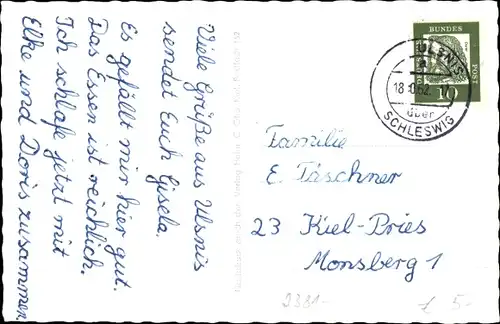 Viele Grüße aus Ulsnis
sendet Euch Gisela.
Es gefällt mir hier gut.
Das Essen ist reichlich.
Ich schlafe jetzt mit
Elke und Doris zusammen
DEUTSCHE
BUNDES
POST
10
ULSNIS
über
SCHLESWIG
Familie
E. Täschner
23 Kiel-Pries
Monsberg 1
5-